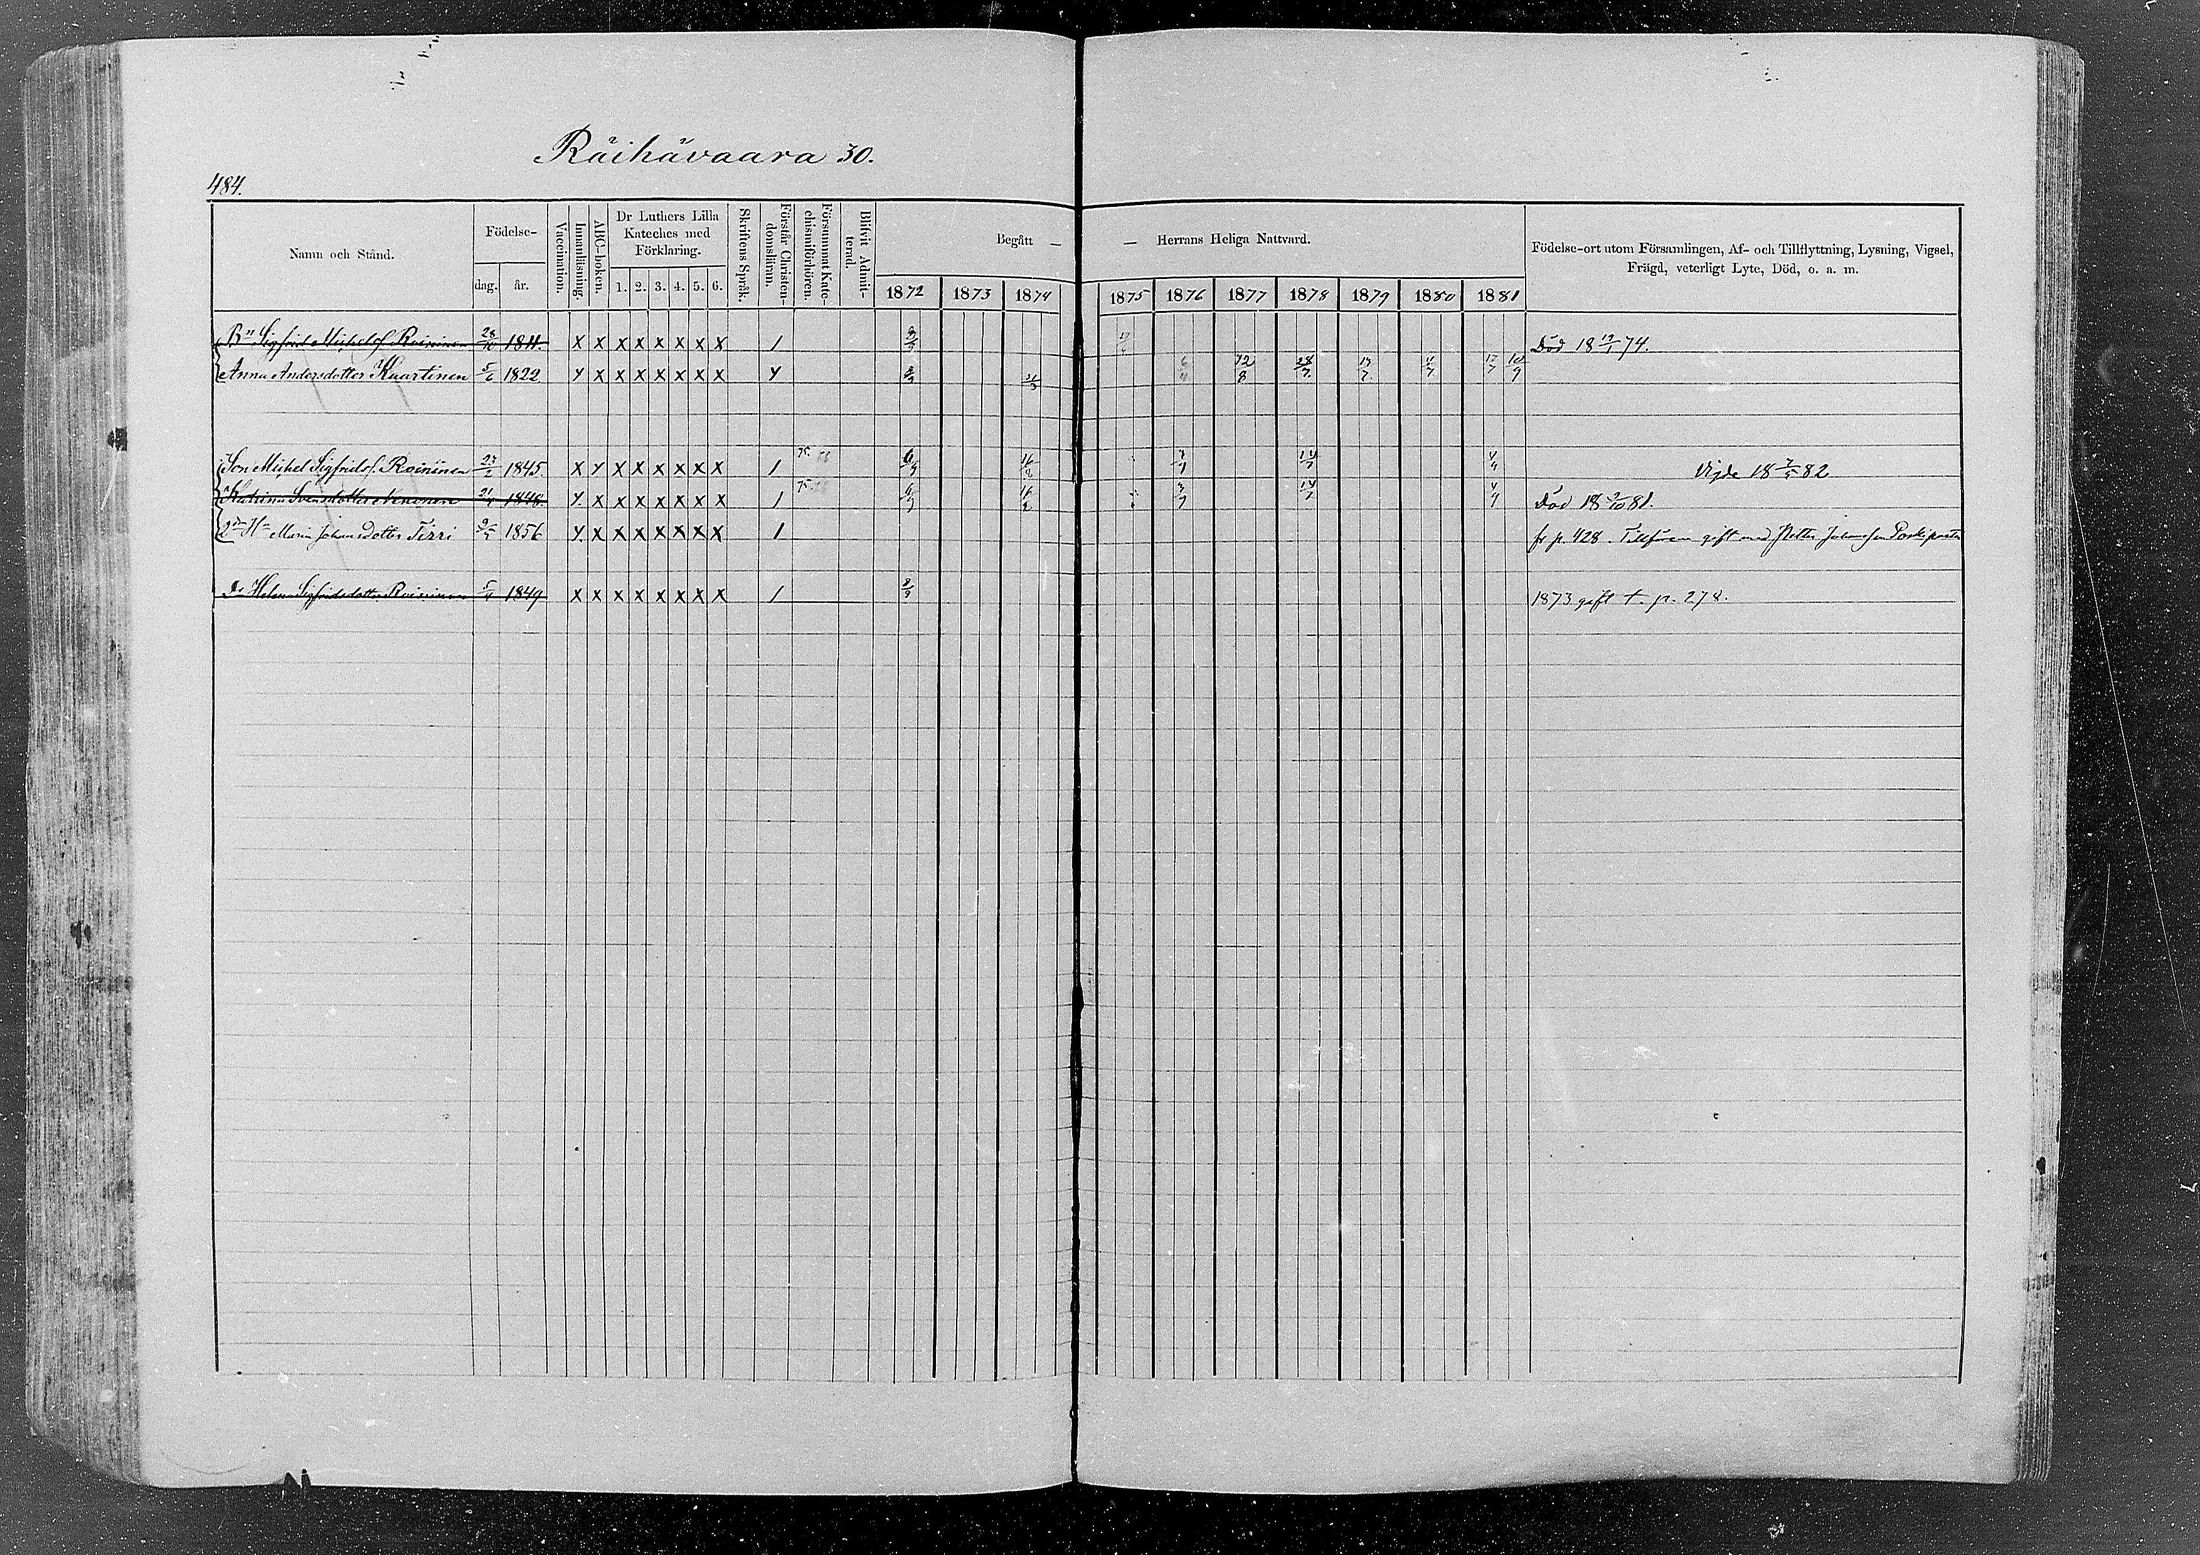 Räihävaara 30.
484.
Namn och Stånd.
Födelse-
dag. år.
Vaccination.
Innanläsning.
ABC-boken.
Dr Luthers Lilla Kateches med Förklaring.
1. 2. 3. 4. 5. 6.
Skriftens Språk.
Förstår Christendomsläran.
Försummat Katechismiförhören.
Blifvit Admitterad.
Begått — — Herrans Heliga Nattvard.
1872 1873 1874 1875 1876 1877 1878 1879 1880 1881
Födelse-ort utom Församlingen, Af- och Tillflyttning, Lysning, Vigsel,
Frägd, veterligt Lyte, Död, o. a. m.
Bn Sigfrid Michelsf. Roininen 28/10 1811. X X X X X X X X 1 Död 18 19/1 74.
Anna Andersdotter Kaartinen 5/6 1822 Y X X X X X X X Y 12/8 28/7
Son Michel Sigfridsf. Roininen 1845. X Y X X X X X X 1 75 16 14/7 4/9 Vigde 18 82
Katrina Svensdotter 1848. Y. X X X X X X X 1 75 16 14/7 4/9 Död 18 81.
2dra Hu Maria Johansdotter Tirri 1856 Y. X X X X X X X 1 fr p. 428. gift med Petter Johansson
Dr Helena Sigfridsdotter Roininen 1849 X X X X X X X X 1 1873 gift t. p. 278.